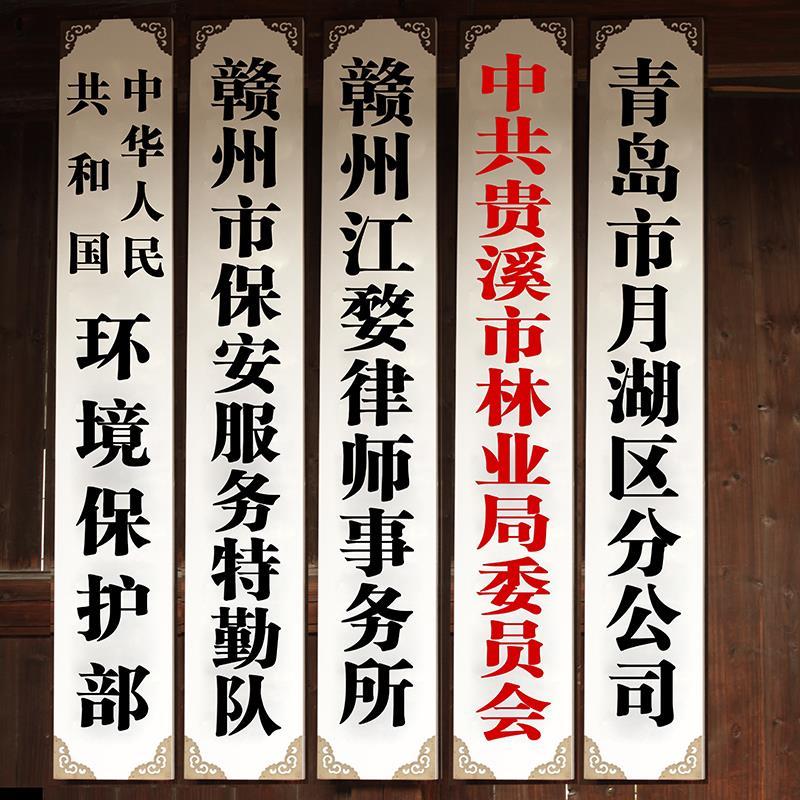 中华人民
共和国
环境保护部
赣州市保安服务特勤队
赣州江婺律师事务所
中共贵溪市林业局委员会
青岛市月湖区分公司